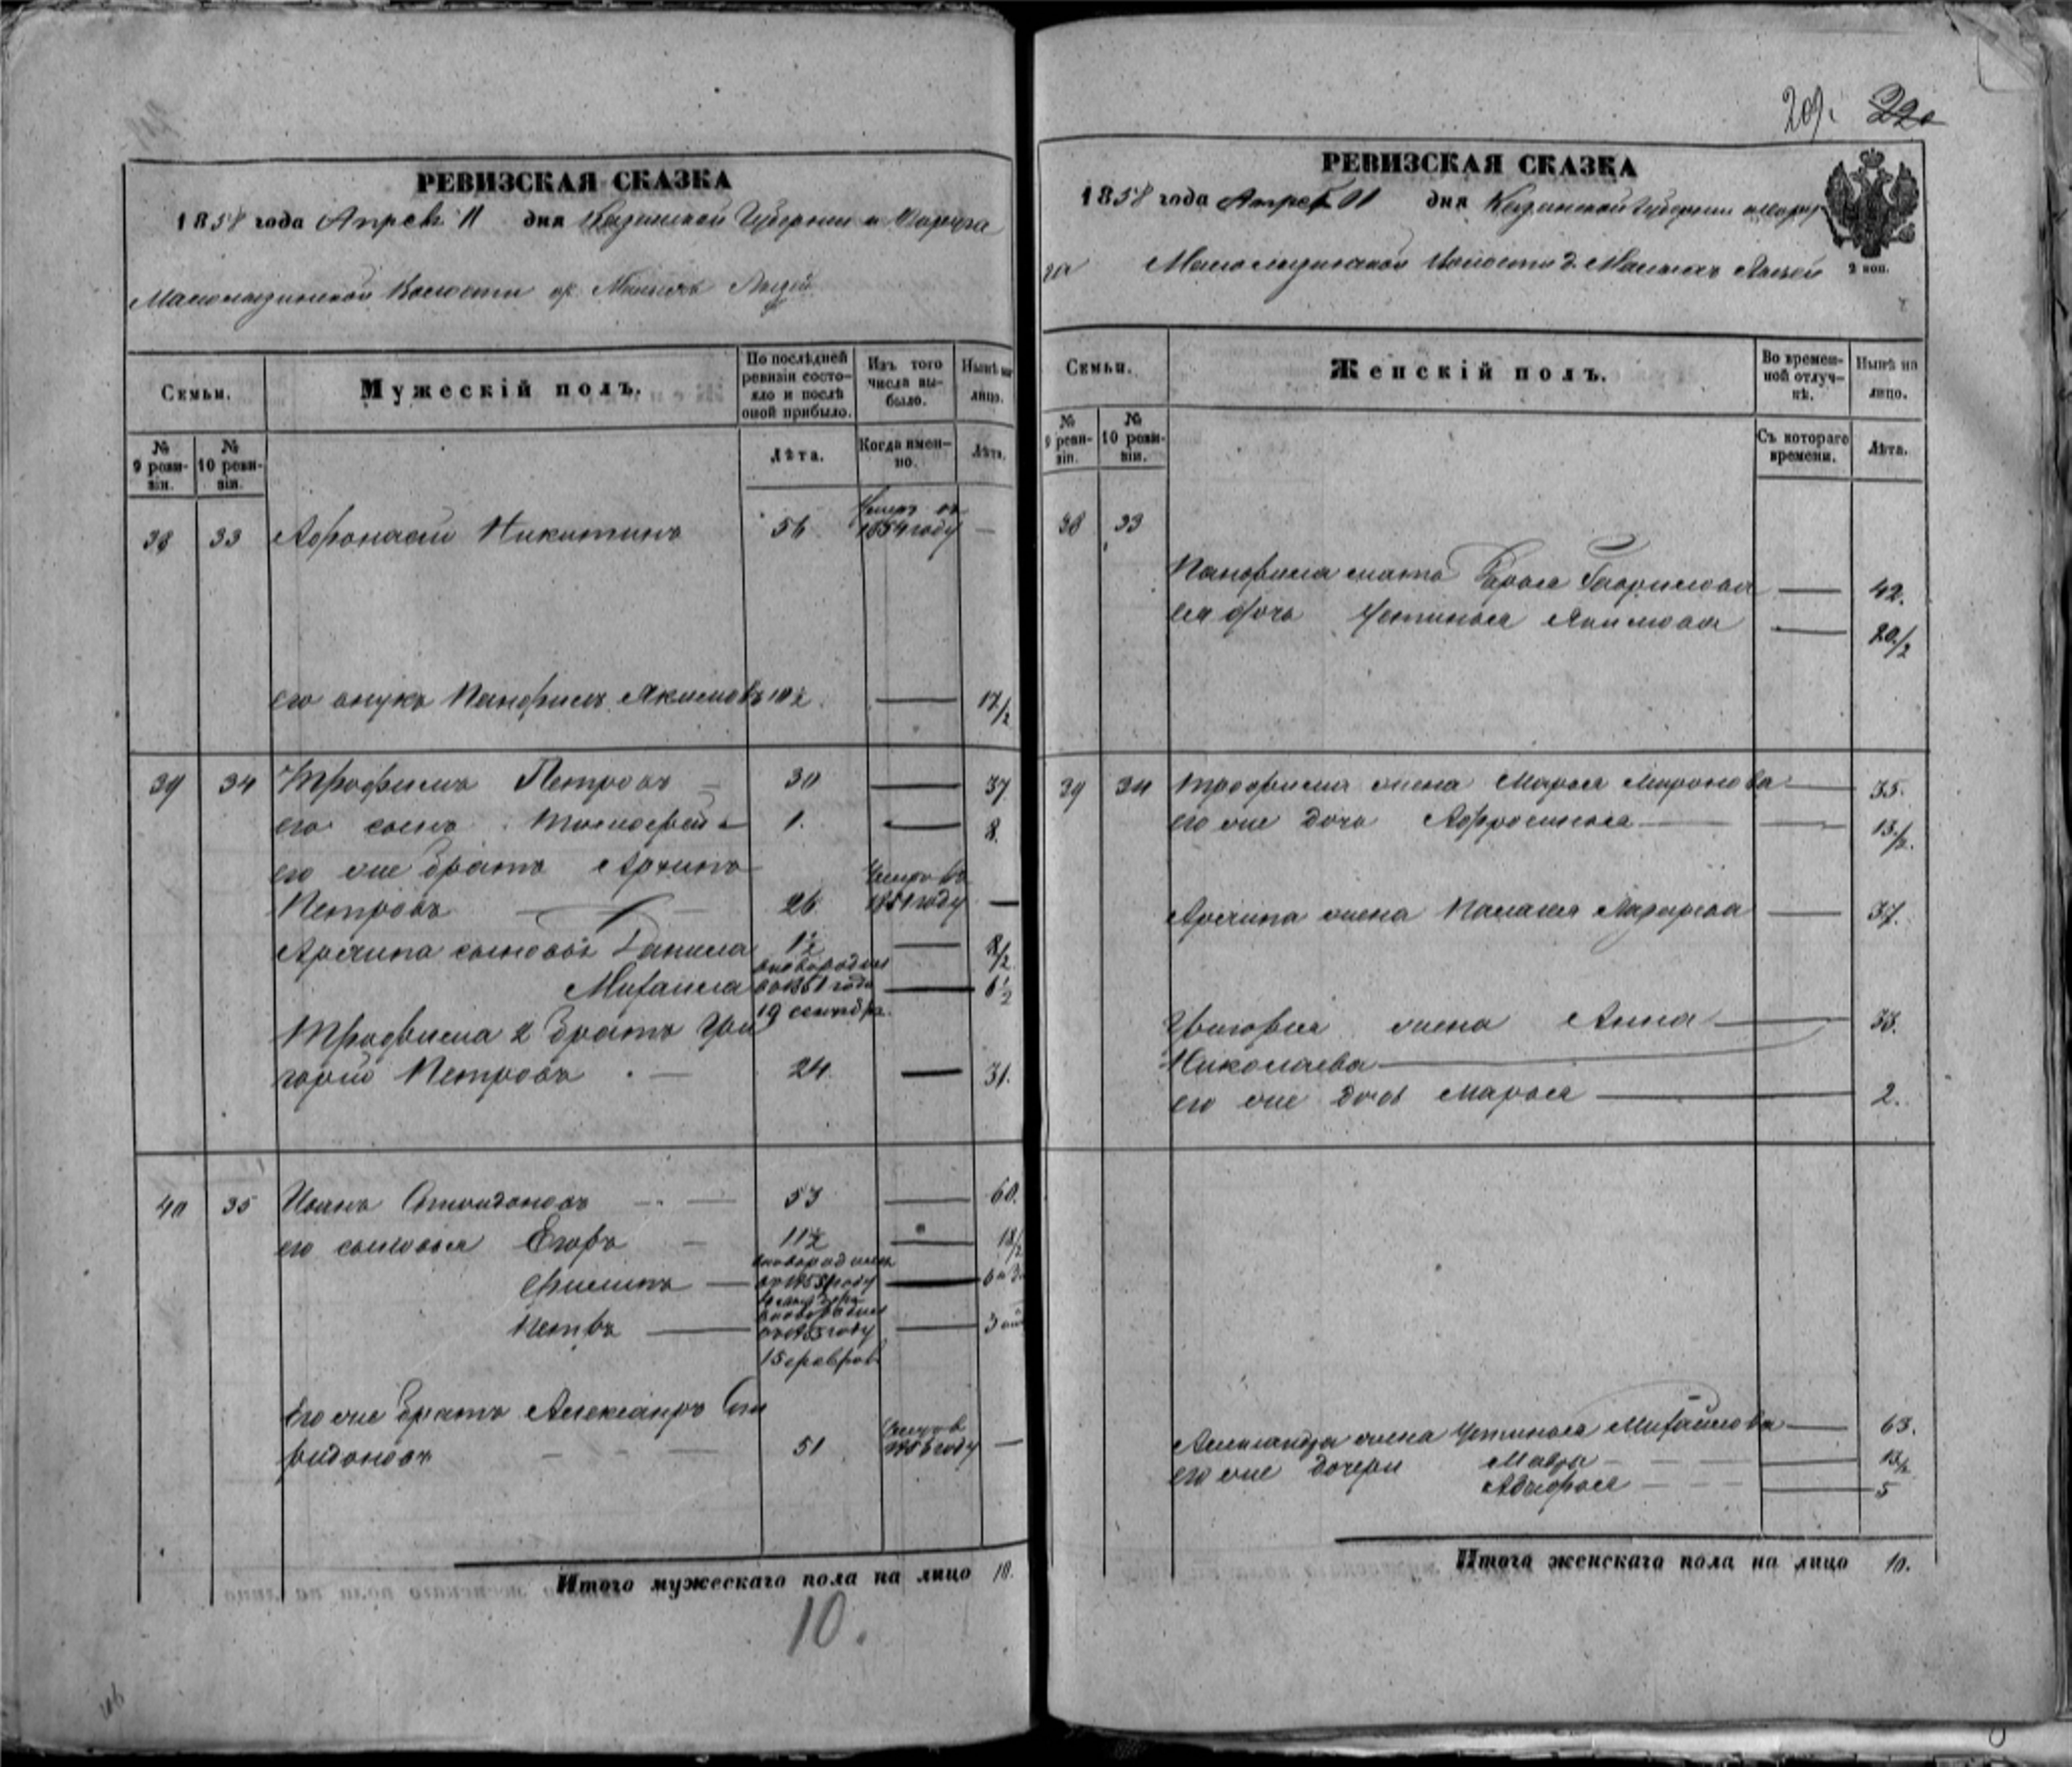 РЕВИЗСКАЯ СКАЗКА
1858 года Апреля 11 дня Казанской Губернии
Волости
Семьи.
Мужескій полъ.
По послѣдней ревизіи состояло и послѣ оной прибыло.
Изъ того числа выбыло.
Нынѣ на лицо.
№ 9 ревизіи.
№ 10 ревизіи.
Лѣта.
Когда именно.
Лѣта.
38 33 Афонасей Никитинъ 56 Умеръ въ 1854 году —
его внукъ Панфилъ Якимовъ 10½ — 17½
39 34 Трофимъ Петровъ — 30 — 37
его сынъ Тимофей 1. — 8.
его же братъ Архипъ
Петровъ — 26 Умеръ въ 1851 году —
Архипа сыновья Данила 1½ — 8½
Михаила новорожден в 1851 года 19 сентября — 6½
Трофима 2 братъ Гри
горий Петровъ — 24 — 31.
40 35 Иванъ Спиридоновъ — 53 — 60.
его сыновья Егоръ — 11½ — 18½
Филипъ — новорожден
Петръ — новорожден въ 1855 году — 3
15 феврал
Его же братъ Александръ Спи
ридоновъ — 51 Умеръ в 1856 году —
Итого мужескаго пола на лицо 10.
10.
209. 220
РЕВИЗСКАЯ СКАЗКА
1858 года Апреля 11 дня Казанской Губернии
Волости д.
2 коп.
Семьи.
Женскій полъ.
Во временной отлучкѣ.
Нынѣ на лицо.
№ 9 ревизіи.
№ 10 ревизіи.
Съ котораго времени.
Лѣта.
38 33
Панфила мать Дарья Гаврилова — 42.
ея дочь Устинья Якимова — 20½
39 34 Трофима жена Марья Миронова — 35.
его же дочь Афросинья — 13½.
Архипа жена Палагея Лазарева — 37.
Григорья жена Анна — 33.
Николаева —
его же дочь Марья — 2.
Александра жена Устинья Михайлова — 63.
его же дочери Мавра — 13½
— 5
Итого женскаго пола на лицо 10.